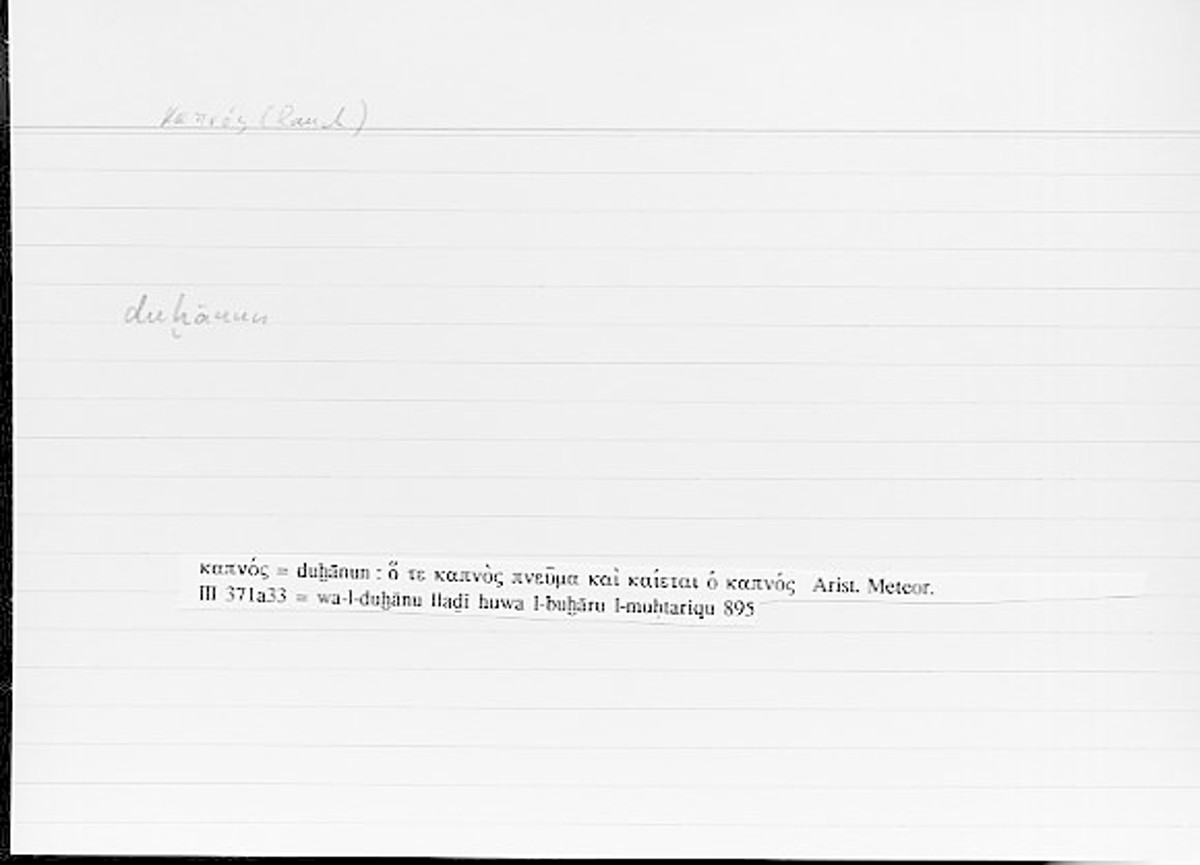 καπνός (Rauch)
duḫānun
καπνός = duḫānun : ὅ τε καπνὸς πνεῦμα καὶ καίεται ὁ καπνός Arist. Meteor.
III 371a33 = wa-l-duḫānu lladī huwa l-buḫāru l-muḥtariqu 895